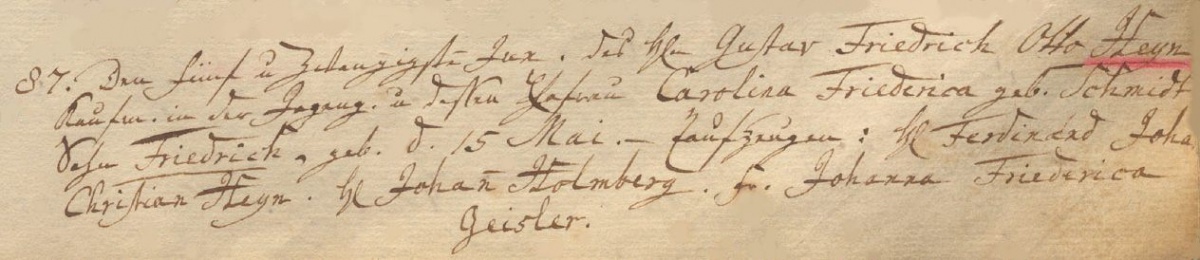 87. Den fünf u Zwanzigste Jun. des Hln Gustav Friedrich Otto Heyn
Kaufm. in der Jägeng. u dessen Ehefrau Carolina Friederica geb. Schmidt
Sohn Friedrich, geb. d. 15 Mai. – Taufzeugen: Hl Ferdinand Joha
Christian Heyn. Hl Johañ Holmberg. fr. Johanna Friederica
Geisler.